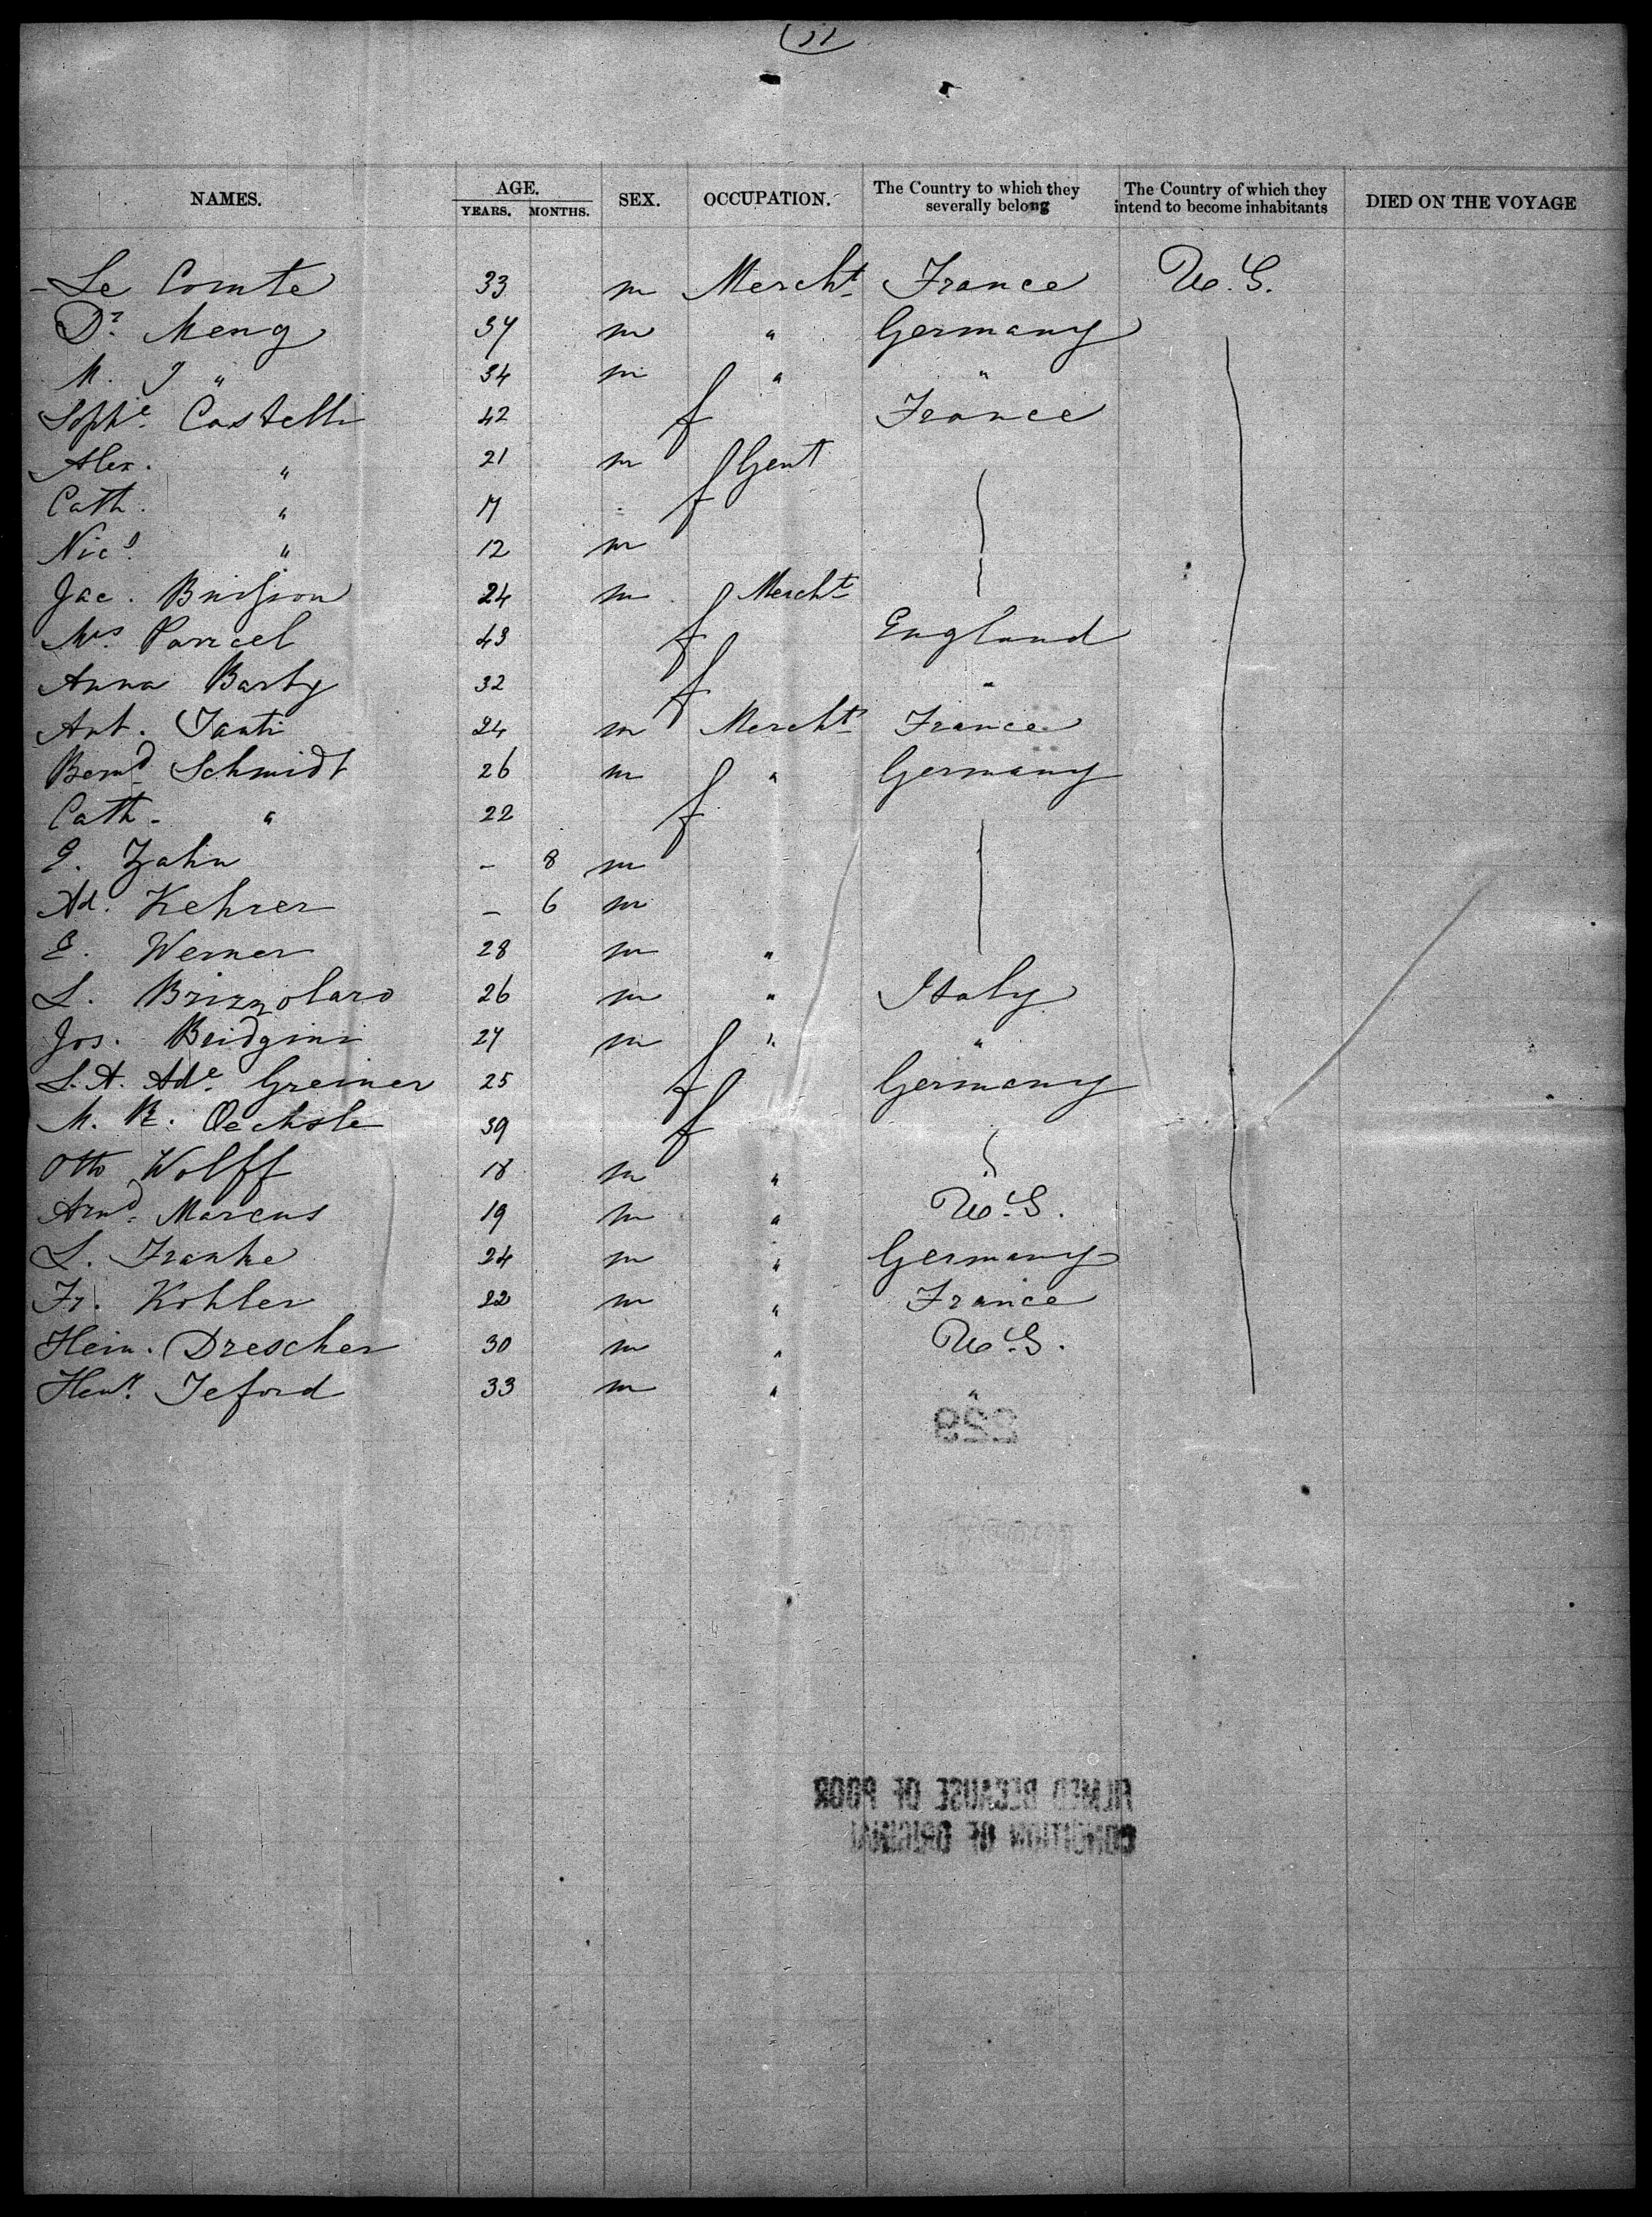 11
NAMES. AGE. YEARS. MONTHS. SEX. OCCUPATION. The Country to which they severally belong The Country of which they intend to become inhabitants DIED ON THE VOYAGE
Le Comte 33 m Mercht France U.S.
Dr. Meng 34 m " Germany
M. J " 34 m " "
Sophe. Castelli 42 f France
Alex. " 21 m Gent
Cath. " 17 f
Nics. " 12 m
Jac. 24 m Mercht
Mrs 43 f England
Anna Barby 32 f "
Ant. 24 m Mercht France
Bernd Schmidt 26 m " Germany
Cath. " 22 f
E. Zahn - 8 m
Ad. Kehrer - 6 m
E. Werner 28 m "
L. Brizzolaro 26 m " Italy
Jos. Bridgini 27 m " "
L. A. Ade. Greiner 25 f Germany
M. R. Oechsle 39 f
Otto Wolff 18 m "
Arnd. Marcus 19 m " U.S.
L. Franke 24 m " Germany
Fr. Kohler 22 m " France
Hein. Drescher 30 m " U.S.
Heny. Teford 33 m " "
229
FILMED BECAUSE OF POOR
CONDITION OF ORIGINAL